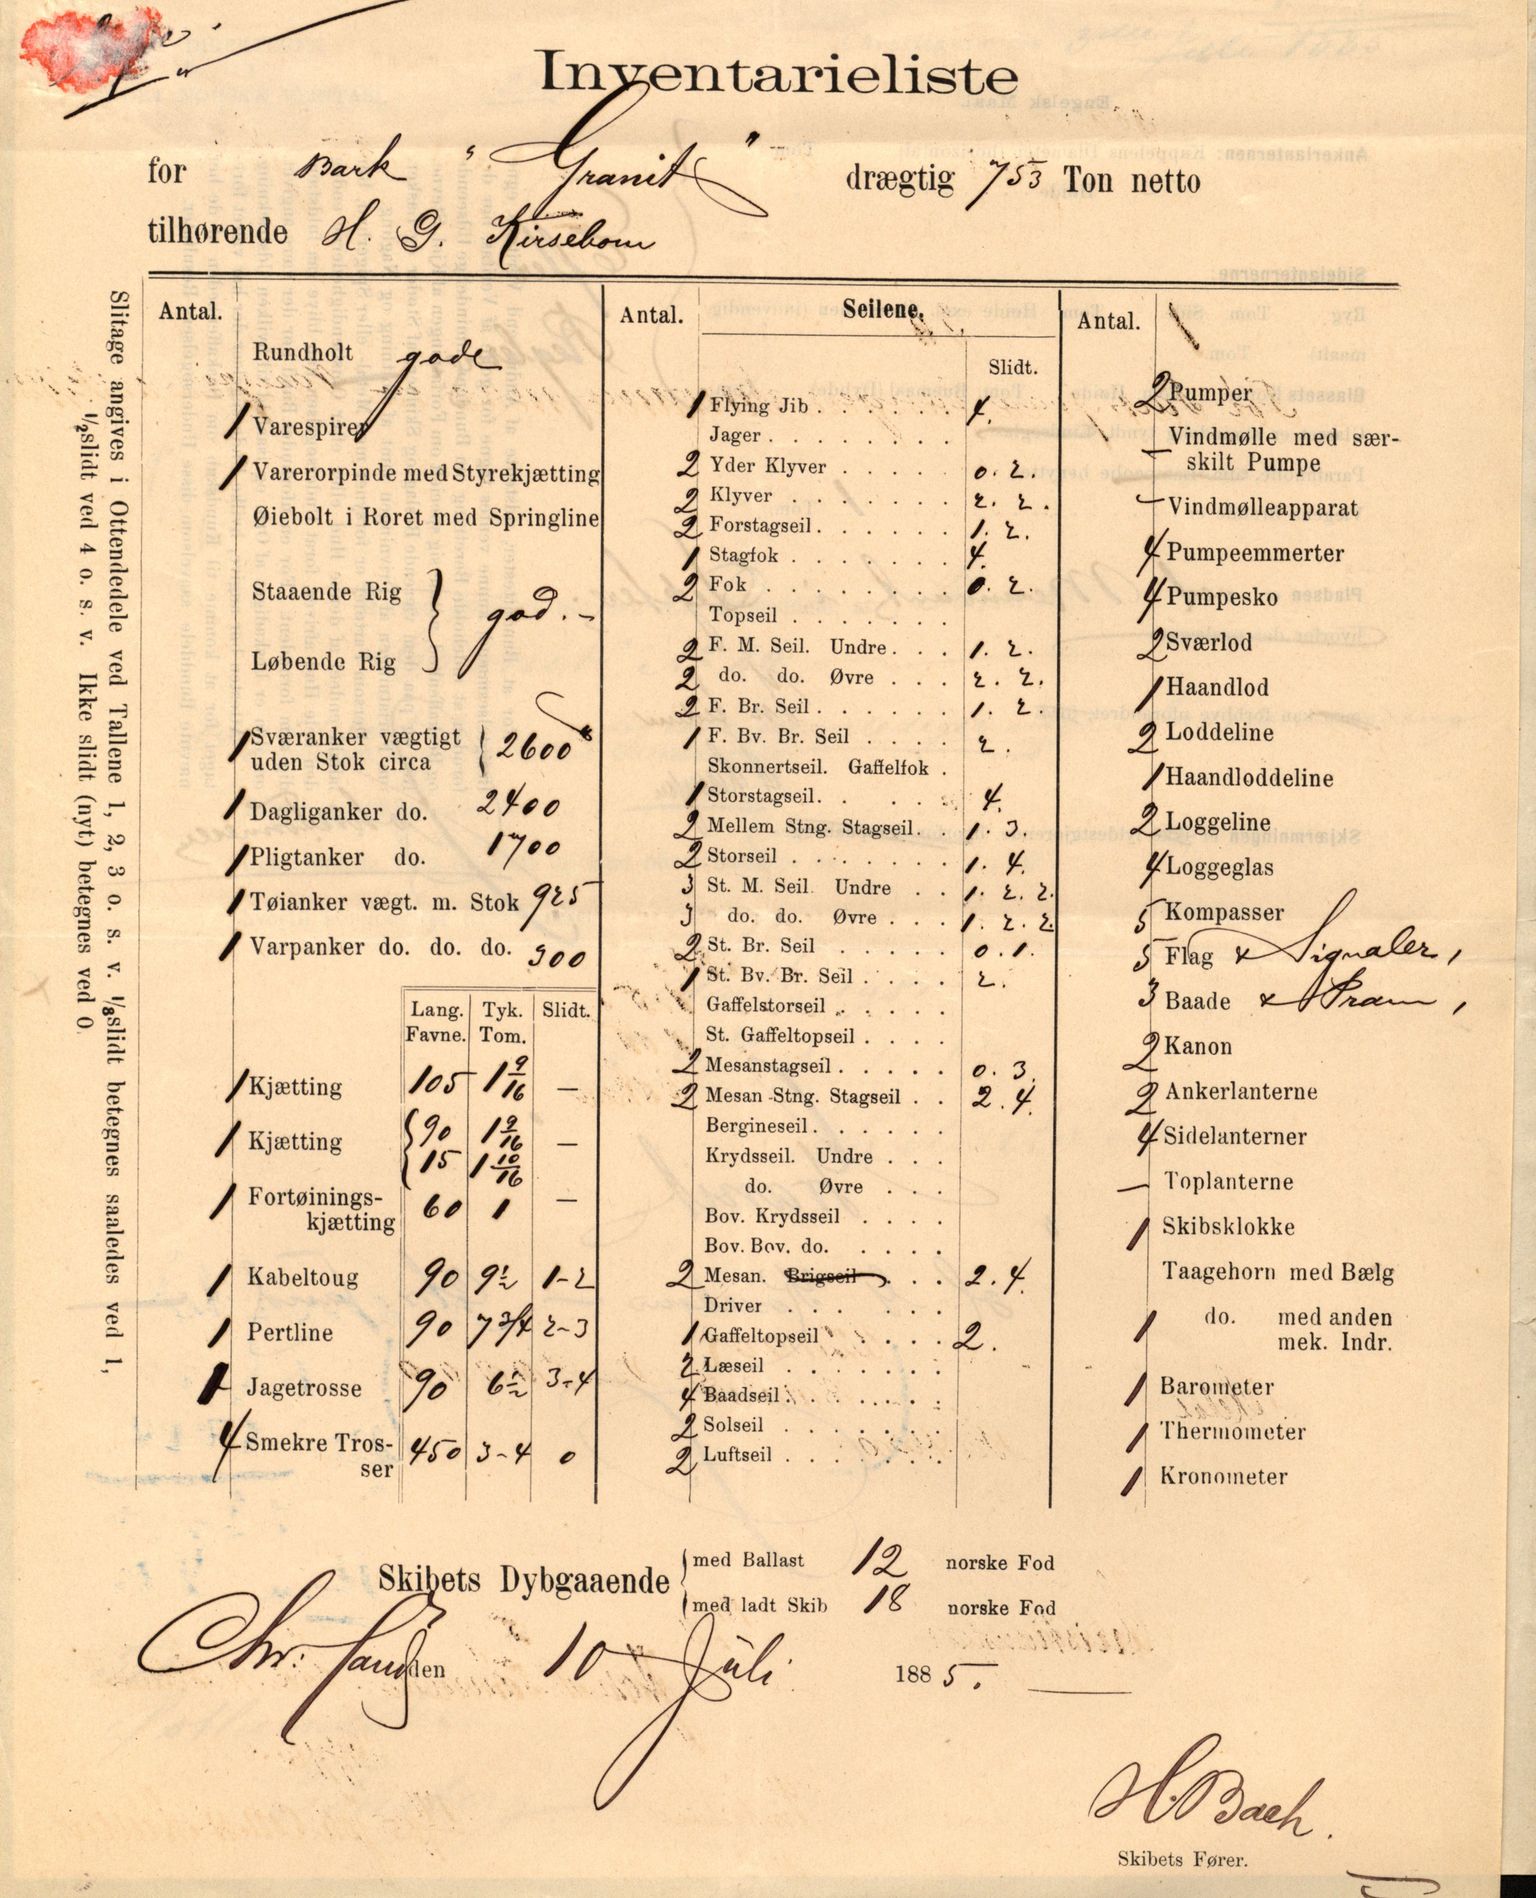 Inventarieliste
for Bark "Granit" drægtig 753 Ton netto
tilhørende H. G. Kirsebom
Slitage angives i Ottendedele ved Tallene 1, 2, 3 o. s. v. 1/8 slidt betegnes saaledes ved 1,
1/2 slidt ved 4 o. s. v. Ikke slidt (nyt) betegnes ved 0.
Antal.
Rundholt gode
1 Varespirer
1 Varerorpinde med Styrekjætting
Øiebolt i Roret med Springline
Staaende Rig
Løbende Rig } god. –
1 Sværanker vægtigt
uden Stok circa { 2600
1 Dagliganker do. 2400
1 Pligtanker do. 1700
1 Tøianker vægt. m. Stok 925
1 Varpanker do. do. do. 300
Lang. Tyk. Slidt.
Favne. Tom.
1 Kjætting 105 1 9/16 –
1 Kjætting { 90 1 9/16 –
15 1 10/16
1 Fortøinings-
kjætting 60 1 –
1 Kabeltoug 90 9 1/2 1-2
1 Pertline 90 7 3/4 2-3
1 Jagetrosse 90 6 1/2 3-4
4 Smekre Tros-
ser 450 3-4 0
Antal. Seilene.
Slidt.
1 Flying Jib . 4.
Jager .
2 Yder Klyver . 0. 2.
2 Klyver . 2. 2.
2 Forstagseil . 1. 2.
1 Stagfok . 4.
2 Fok . 0. 2.
Topseil .
2 F. M. Seil. Undre . 1. 2.
2 do. do. Øvre . 2. 2.
2 F. Br. Seil . 1. 2.
1 F. Bv. Br. Seil . 2.
Skonnertseil. Gaffelfok .
1 Storstagseil . 4.
2 Mellem Stng. Stagseil . 1. 3.
2 Storseil . 1. 4.
3 St. M. Seil. Undre . 1. 2. 2.
3 do. do. Øvre . 1. 2. 2.
2 St. Br. Seil . 0. 1.
1 St. Bv. Br. Seil . 2.
Gaffelstorseil .
St. Gaffeltopseil .
2 Mesanstagseil . 0. 3.
2 Mesan Stng. Stagseil . 2. 4.
Bergineseil .
Krydsseil. Undre .
do. Øvre .
Bov. Krydsseil .
Bov. Bov. do. .
2 Mesan. Brigseil . 2. 4.
Driver .
1 Gaffeltopseil . 2.
2 Læseil .
4 Baadseil .
2 Solseil .
2 Luftseil .
Antal.
2 Pumper
– Vindmølle med sær-
skilt Pumpe
– Vindmølleapparat
4 Pumpeemmerter
4 Pumpesko
2 Sværlod
1 Haandlod
2 Loddeline
1 Haandloddeline
2 Loggeline
4 Loggeglas
5 Kompasser
5 Flag & Signaler,
3 Baade & Pram,
2 Kanon
2 Ankerlanterne
4 Sidelanterner
– Toplanterne
1 Skibsklokke
Taagehorn med Bælg
1 do. med anden
mek. Indr.
1 Barometer
1 Thermometer
1 Kronometer
Skibets Dybgaaende { med Ballast 12 norske Fod
med ladt Skib 18 norske Fod
Chr: Sand den 10 Juli 1885.
H. Bach.
Skibets Fører.